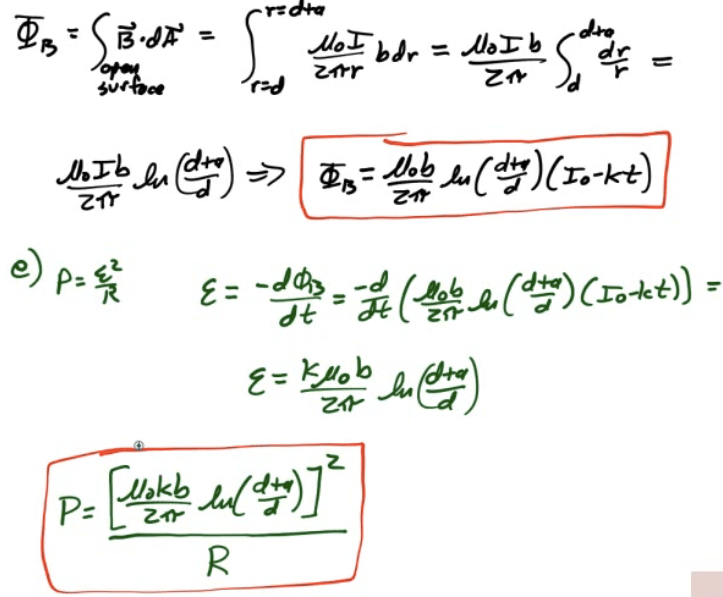 Φ_B = ∫_{open surface} B⃗·dA⃗ = ∫_{r=d}^{r=d+a} μ₀I/2πr b dr = μ₀Ib/2π ∫_d^{d+a} dr/r =
μ₀Ib/2π ln(d+a/d) ⇒ Φ_B = μ₀b/2π ln(d+a/d)(I₀-kt)
e) P = ε²/R ε = -dΦ_B/dt = -d/dt (μ₀b/2π ln(d+a/d)(I₀-kt)) =
ε = kμ₀b/2π ln(d+a/d)
P = [μ₀kb/2π ln(d+a/d)]²/R